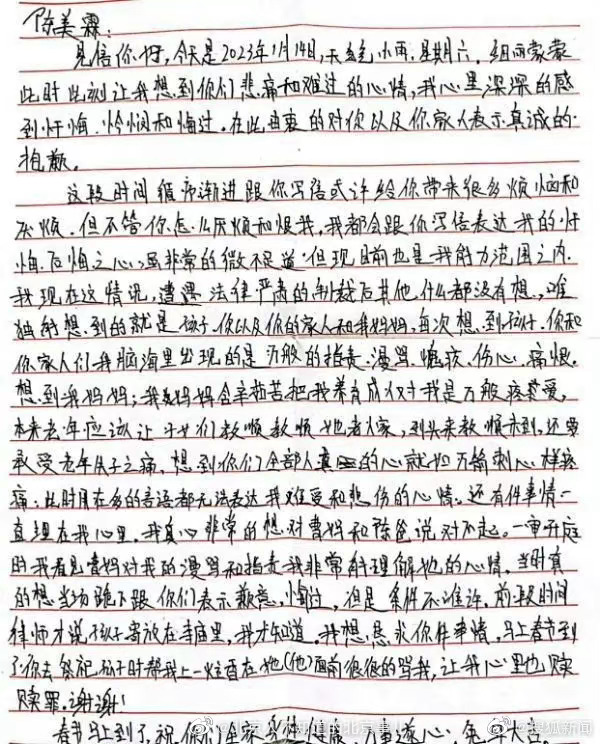 陈美霖:
见信你好,今天是2023年1月14日,天气小雨.星期六.细雨蒙蒙
此时此刻让我想到你们悲痛和难过的心情,我心里深深的感
到忏悔.怜悯和悔过.在此由衷的对你以及你家人表示真诚的
抱歉。
这段时间循序渐进跟你写信或许给你带来很多烦恼和
厌烦.但不管你怎么厌烦和恨我,我都会跟你写信表达我的忏
悔.后悔之心,虽非常的微不足道.但现目前也是我能力范围之内.
我现在这情况,遭遇法律严肃的制裁后其他什么都没有想,唯
独能想到的就是孩子.你以及你的家人和我妈妈,每次想到孩子.你和
你家人们我脑海里出现的是万般的指责.漫骂.憔疾.伤心.痛恨.
想到我妈妈;我妈妈含辛茹苦把我养育成人对我是万般疼爱,
本来老年应该让子女们孝顺孝顺她老人家,到头来孝顺未到,还要
承受老年失子之痛.想到你们全部人的心就如万箭刺心一样疼
痛;此时再在多的言语都无法表达我难受和悲伤的心情.还有件事情一
直埋在我心里.我真心非常的想对曹妈和陈爸说对不起.一审开庭
时我看见曹妈对我的漫骂和指责我非常能理解她的心情.当时真
的想当场跪下跟你们表示歉意,悔过,但是条件不准许.前段时间
律师才说孩子寄放在寺庙里,我才知道.我想恳求你件事情.马上春节到
了你去祭祀孩子时帮我上一炷香在她(他)面前很很的骂我,让我心里也赎
赎罪.谢谢!
春节马上到了.祝你们全家身体健康.万事遂心.兔年大吉
@搜狐新闻